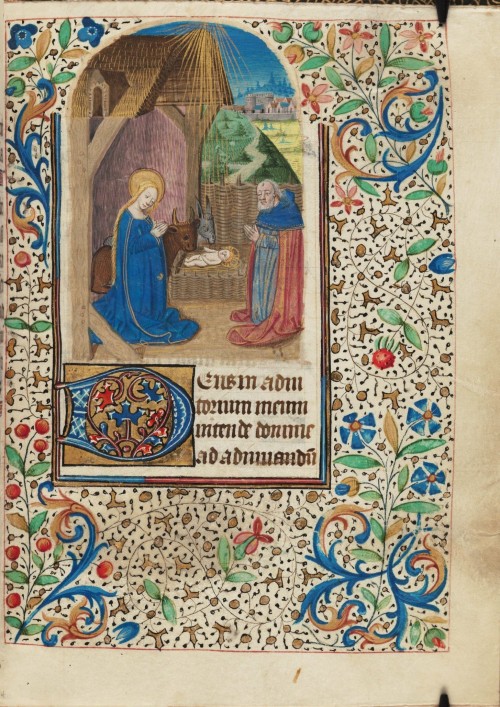 Deus in adiu
torium meum
intende domine
ad adiuuandũ